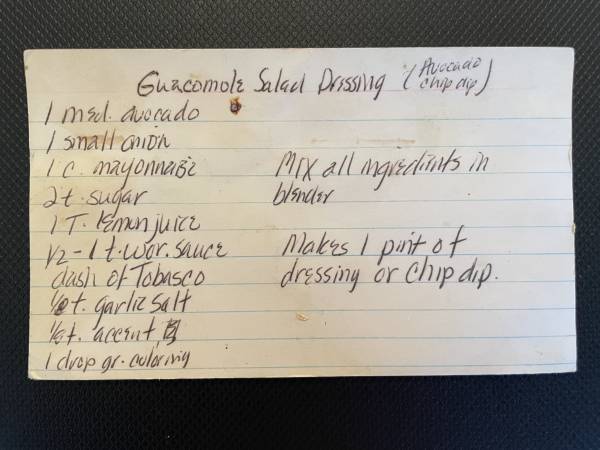 Guacamole Salad Dressing (Avocado chip dip)
1 med. avocado
1 small onion
1 c. mayonnaise
2 t. sugar
1 T. lemon juice
1/2 - 1 t. wor. sauce
dash of Tobasco
t. garlic salt
t. accent
1 drop gr. coloring
Mix all ingredients in
blender
Makes 1 pint of
dressing or chip dip.